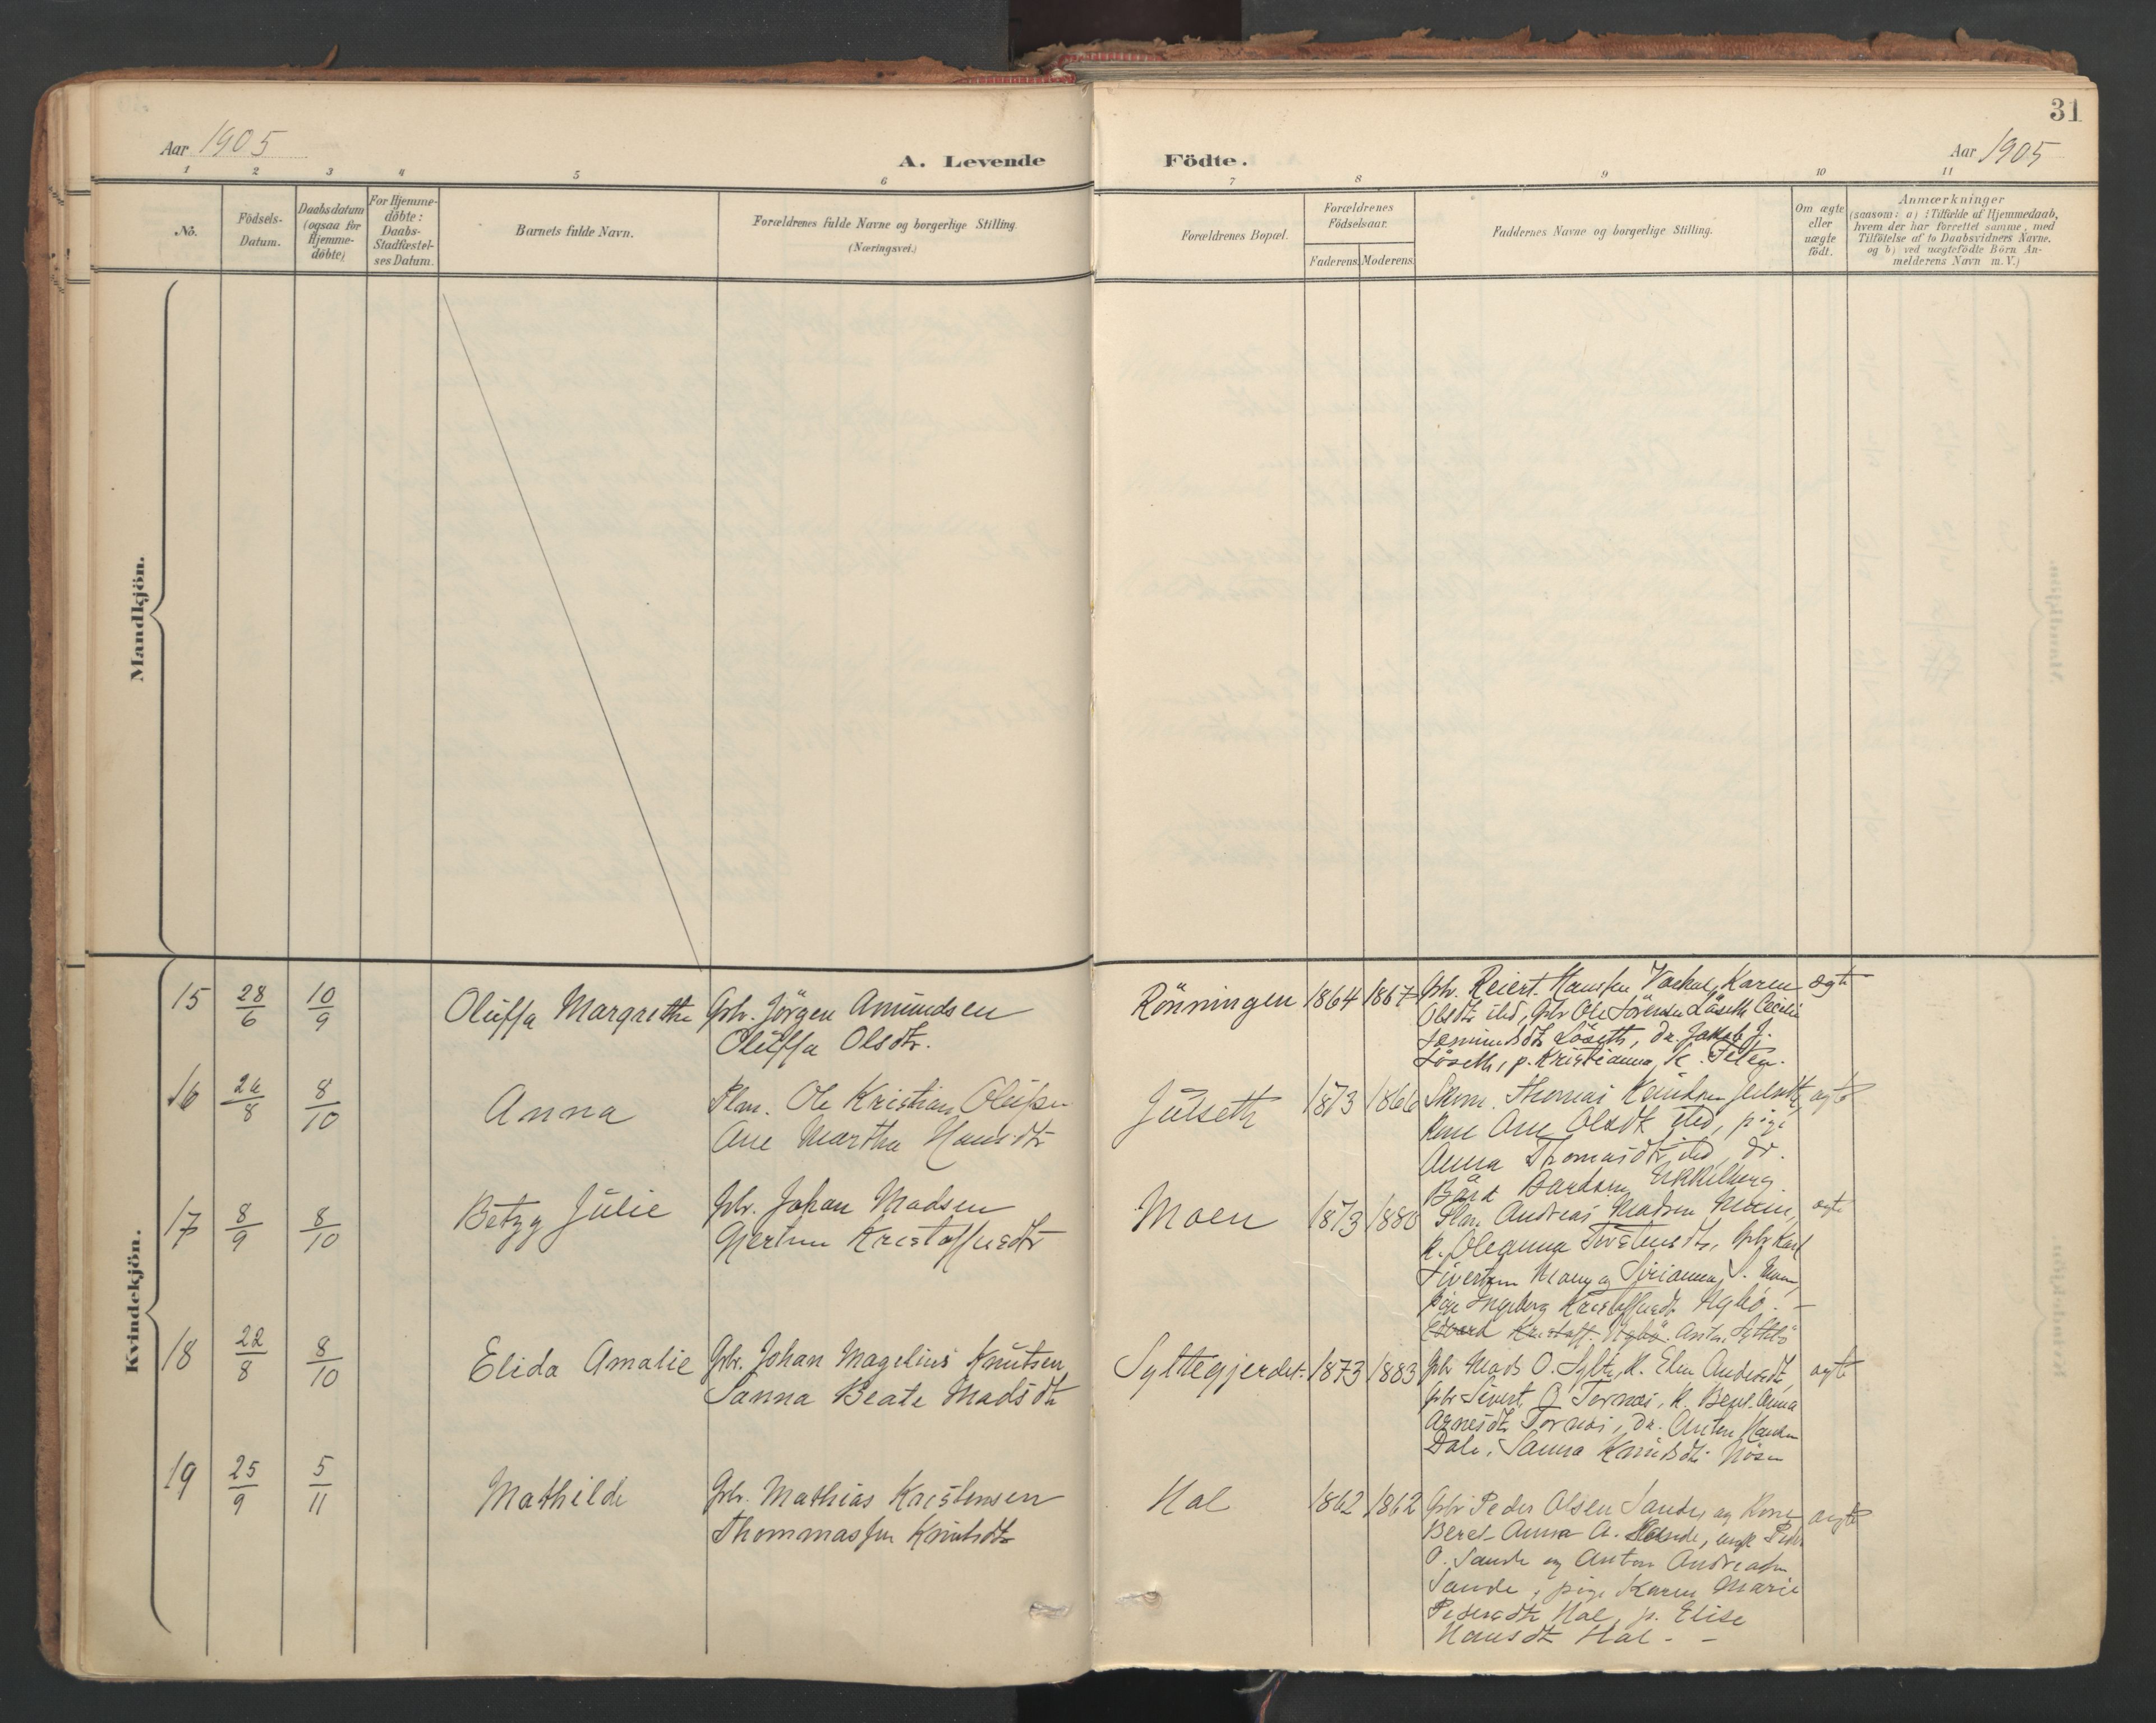 31
Aar 1905
A. Levende Födte.
Aar 1905
1 2 3 4 5 6 7 8 9 10 11
No.
Födsels-
Datum.
Daabsdatum
(ogsaa for
Hjemme-
döbte)
For Hjemme-
döbte:
Daabs-
Stadfæstel-
ses Datum.
Barnets fulde Navn.
Forældrenes fulde Navne og borgerlige Stilling.
(Næringsvei.)
Forældrenes Bopæl.
Forældrenes
Födselsaar.
Faderens. Moderens.
Faddernes Navne og borgerlige Stilling.
Om ægte
eller
uægte
födt.
Anmærkninger
(saasom: a) i Tilfælde af Hjemmedaab,
hvem der har forrettet samme, med
Tilföielse af to Daabsvidners Navne,
og b) ved uægtefödte Börn An-
melderens Navn m.V.)
Mandkjön.
Kvindekjön.
15 28/6 10/9 Oluffa Margrethe Gbr. Jörgen Amundsen
Oluffa Olsdtr.
Rönningen 1864 1867 Gbr. Reiert Hansen Karen ægte
Olsdtr ibd, Gbr Ole Sörensen Löseth Cecilie
Löseth, Dr. Jakob J.
Löseth, p. Kristianna K.
16 8/10 Anna Plm. Ole Kristian
Ane Martha Hansdtr
Julseth 1873 1866 Thomas Knudsen ægte
Kone Ane Olsdtr ibd, pige
Anna Thomasdtr ibd, dr.
Bård Bardsen
17 8/9 8/10 Betzy Julie Gbr. Johan Madsen
Kristoffersdtr
Moen 1873 1880 Plm. Andreas Madsen Moen, ægte
K. Oleanna Gbr Karl
Sivertsen S. Moen,
pige Ingeborg Kristoffersdtr
Edvard Kristoff. Anton
18 22/8 8/10 Elida Amalie Gbr. Johan Magelius Knutsen
Sanna Beate Madsdtr
Syltegjerdet 1873 1883 Gbr Mads O. Sylte, K. Elen Andersdtr, ægte
Gbr Sivert O Tornæs, K. Beret Anna
Tornæs, Dr. Anton Hansen
Dale, Sanna Knudsdtr
19 25/9 5/11 Mathilde Gbr. Mathias Kristensen
Knutsdtr
Hol 1862 1862 Gbr Peder Olsen Sande, og Kone ægte
Beret Anna A. Sande, ungk. Peder
O. Sande og Anton Andreasen
Sande, pige Karen Marie
Pedersdtr Hol, p. Elise
Hansdtr Hol -